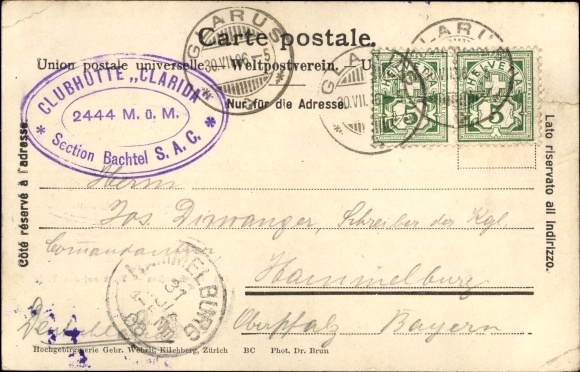 Carte postale.
Union postale universelle. Weltpostverein.
Nur für die Adresse
Côté réservé à l'adresse
Lato riservato all indirizzo.
CLUBHÜTTE „CLARIDA"
2444 M. ü. M.
* Section Bachtel S. A. C. *
GLARUS
30.VII.06
GLARUS
30.VII.
GLARUS
HELVETIA
5
Herrn
Jos. Dirwanger, Schreiber der Kgl.
Comandantur
Hammelburg
HAMMELBURG
Oberpfalz Bayern
Hochgebirgserie Gebr. Wehrli, Kilchberg, Zürich BC Phot. Dr. Brun